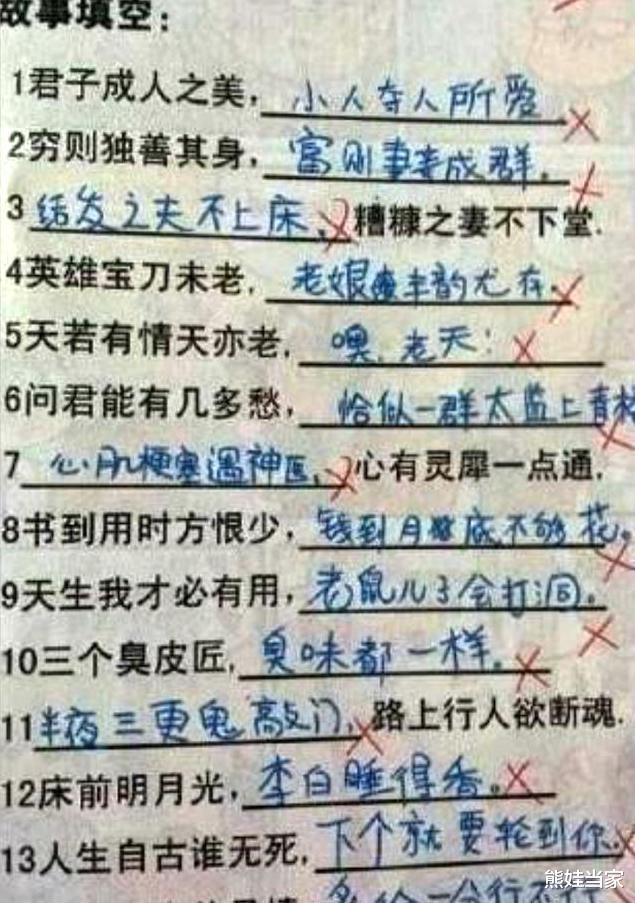 故事填空：
1君子成人之美，小人夺人所爱
2穷则独善其身，富则妻妾成群。
3结发之夫不上床，糟糠之妻不下堂.
4英雄宝刀未老，老娘丰韵尤存.
5天若有情天亦老，噢，老天！
6问君能有几多愁，恰似一群太监上青
7心肌梗塞遇神医，心有灵犀一点通.
8书到用时方恨少，钱到月底不够花。
9天生我才必有用，老鼠儿子会打洞。
10三个臭皮匠，臭味都一样。
11半夜三更鬼敲门，路上行人欲断魂.
12床前明月光，李白睡得香。
13人生自古谁无死，下个就要轮到你.
熊娃当家